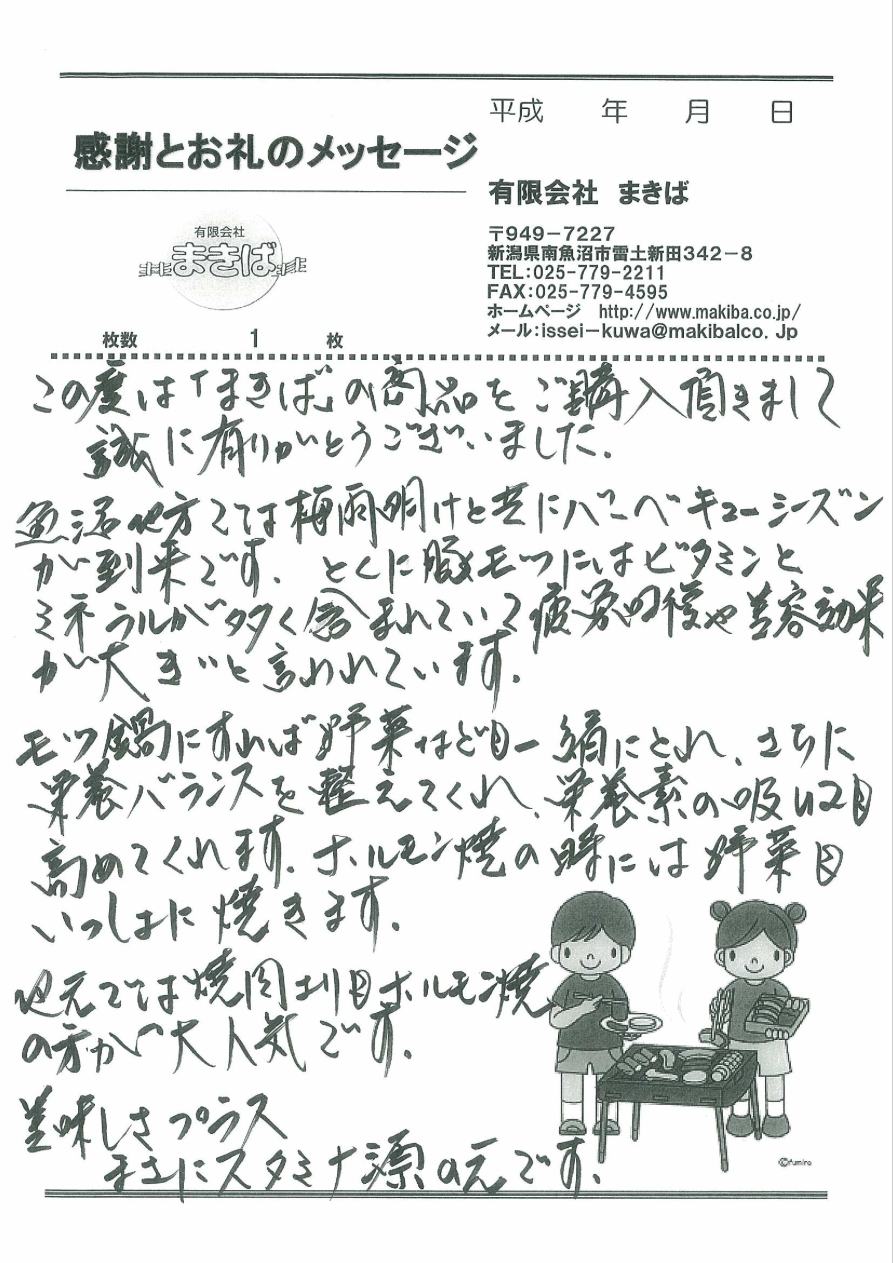 平成　　年　　月　　日
感謝とお礼のメッセージ
有限会社　まきば
有限会社
まきば
〒949-7227
新潟県南魚沼市雷土新田342-8
TEL:025-779-2211
FAX:025-779-4595
ホームページ　http://www.makiba.co.jp/
メール:issei-kuwa@makibalco.Jp
枚数　1　枚
この度は「まきば」の商品をご購入頂きまして
誠に有りがとうございました.
魚沼地方では梅雨明けと共にバーベキューシーズン
が到来です. とくに豚モツにはビタミンと
ミネラルが多く含まれていて疲労回復や美容効果
が大きいと言われています.
モツ鍋にすれば野菜なども一緒にとれ、さらに
栄養バランスを整えてくれ、栄養素の吸収も
高めてくれます. ホルモン焼の時には野菜も
いっしょに焼きます.
地元では焼肉よりもホルモン焼
の方が大人気です.
美味しさプラス
まさにスタミナ源の元です.
©fumira